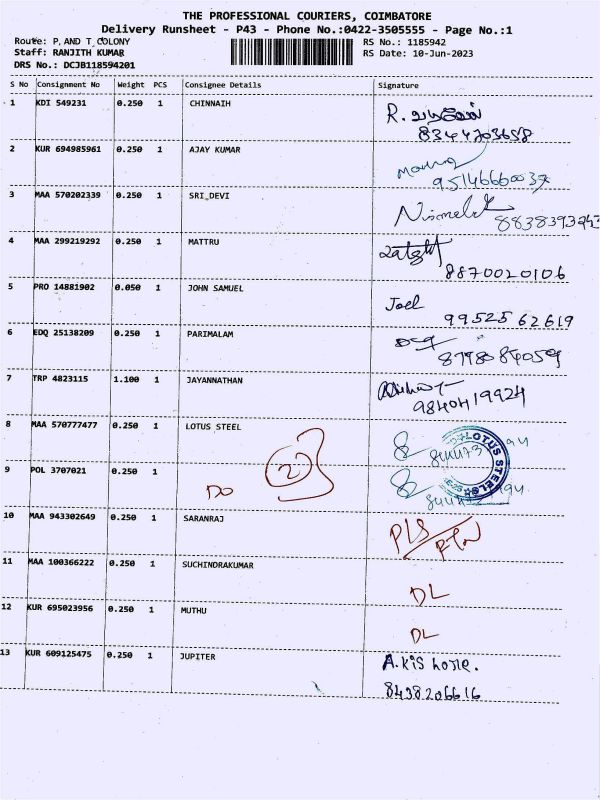 THE PROFESSIONAL COURIERS, COIMBATORE
Delivery Runsheet - P43 - Phone No.:0422-3505555 - Page No.:1
Route: P, AND T, COLONY
RS No.: 1185942
Staff: RANJITH KUMAR
RS Date: 10-Jun-2023
DRS No.: DCJB118594201
S No Consignment No Weight PCS Consignee Details Signature
1 KDI 549231 0.250 1 CHINNAIH
R.
8344703658
2 KUR 694985961 0.250 1 AJAY KUMAR
9514666003
3 MAA 570202339 0.250 1 SRI_DEVI
8838393243
4 MAA 299219292 0.250 1 MATTRU
8870020106
5 PRO 14881902 0.050 1 JOHN SAMUEL
Joel
9952562619
6 EDQ 25138209 0.250 1 PARIMALAM
8798084059
7 TRP 4823115 1.100 1 JAYANNATHAN
9840419924
8 MAA 570777477 0.250 1 LOTUS STEEL
LOTUS STEEL
9 POL 3707021 0.250 1
DO 2
10 MAA 943302649 0.250 1 SARANRAJ
11 MAA 100366222 0.250 1 SUCHINDRAKUMAR
DL
12 KUR 695023956 0.250 1 MUTHU
DL
13 KUR 609125475 0.250 1 JUPITER
8438206616